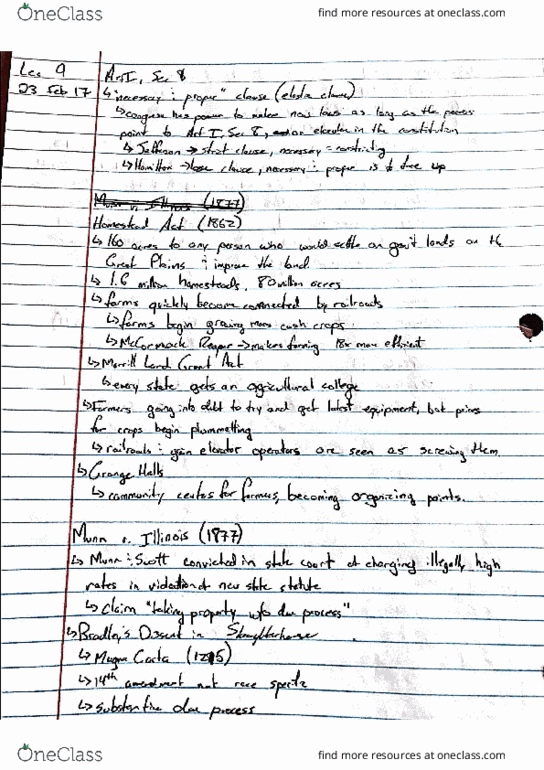 OneClass
find more resources at oneclass.com
Lec 9
23 Feb 17
Art I, Sec 8
↳ "necessary & proper" clause (elastic clause)
↳ congress has power to make new laws as long as the powers
point to Act I, Sec 8, elsewhere in the constitution
↳ Jefferson → strict clause, necessary = constricting
↳ Hamilton → loose clause, necessary & proper is up
Munn v. Illinois (1877)
Homestead Act (1862)
↳ 160 acres to any person who would settle on gov't lands on the
Great Plains & improve the land
↳ 1.6 million homesteads, 80 million acres
↳ farms quickly become connected by railroads
↳ farms begin growing more cash crops
↳ McCormack Reaper → makes farming 18x more efficient
↳ Morrill Land Grant Act
↳ every state gets an agricultural college
↳ Farmers going into debt to try and get latest equipment, but prices
for crops begin plummetting
↳ railroads & grain elevator operators are seen as screwing them
↳ Grange Halls
↳ community centers for farmers, becoming organizing points.
Munn v. Illinois (1877)
↳ Munn & Scott convicted in state court of charging illegally high
rates in violation of new state statute
↳ Claim "taking property w/o due process"
↳ Bradley's Dissent in Slaughterhouse
↳ Magna Carta (1215)
↳ 14th amendment not race specific
↳ substantive due process
OneClass
find more resources at oneclass.com